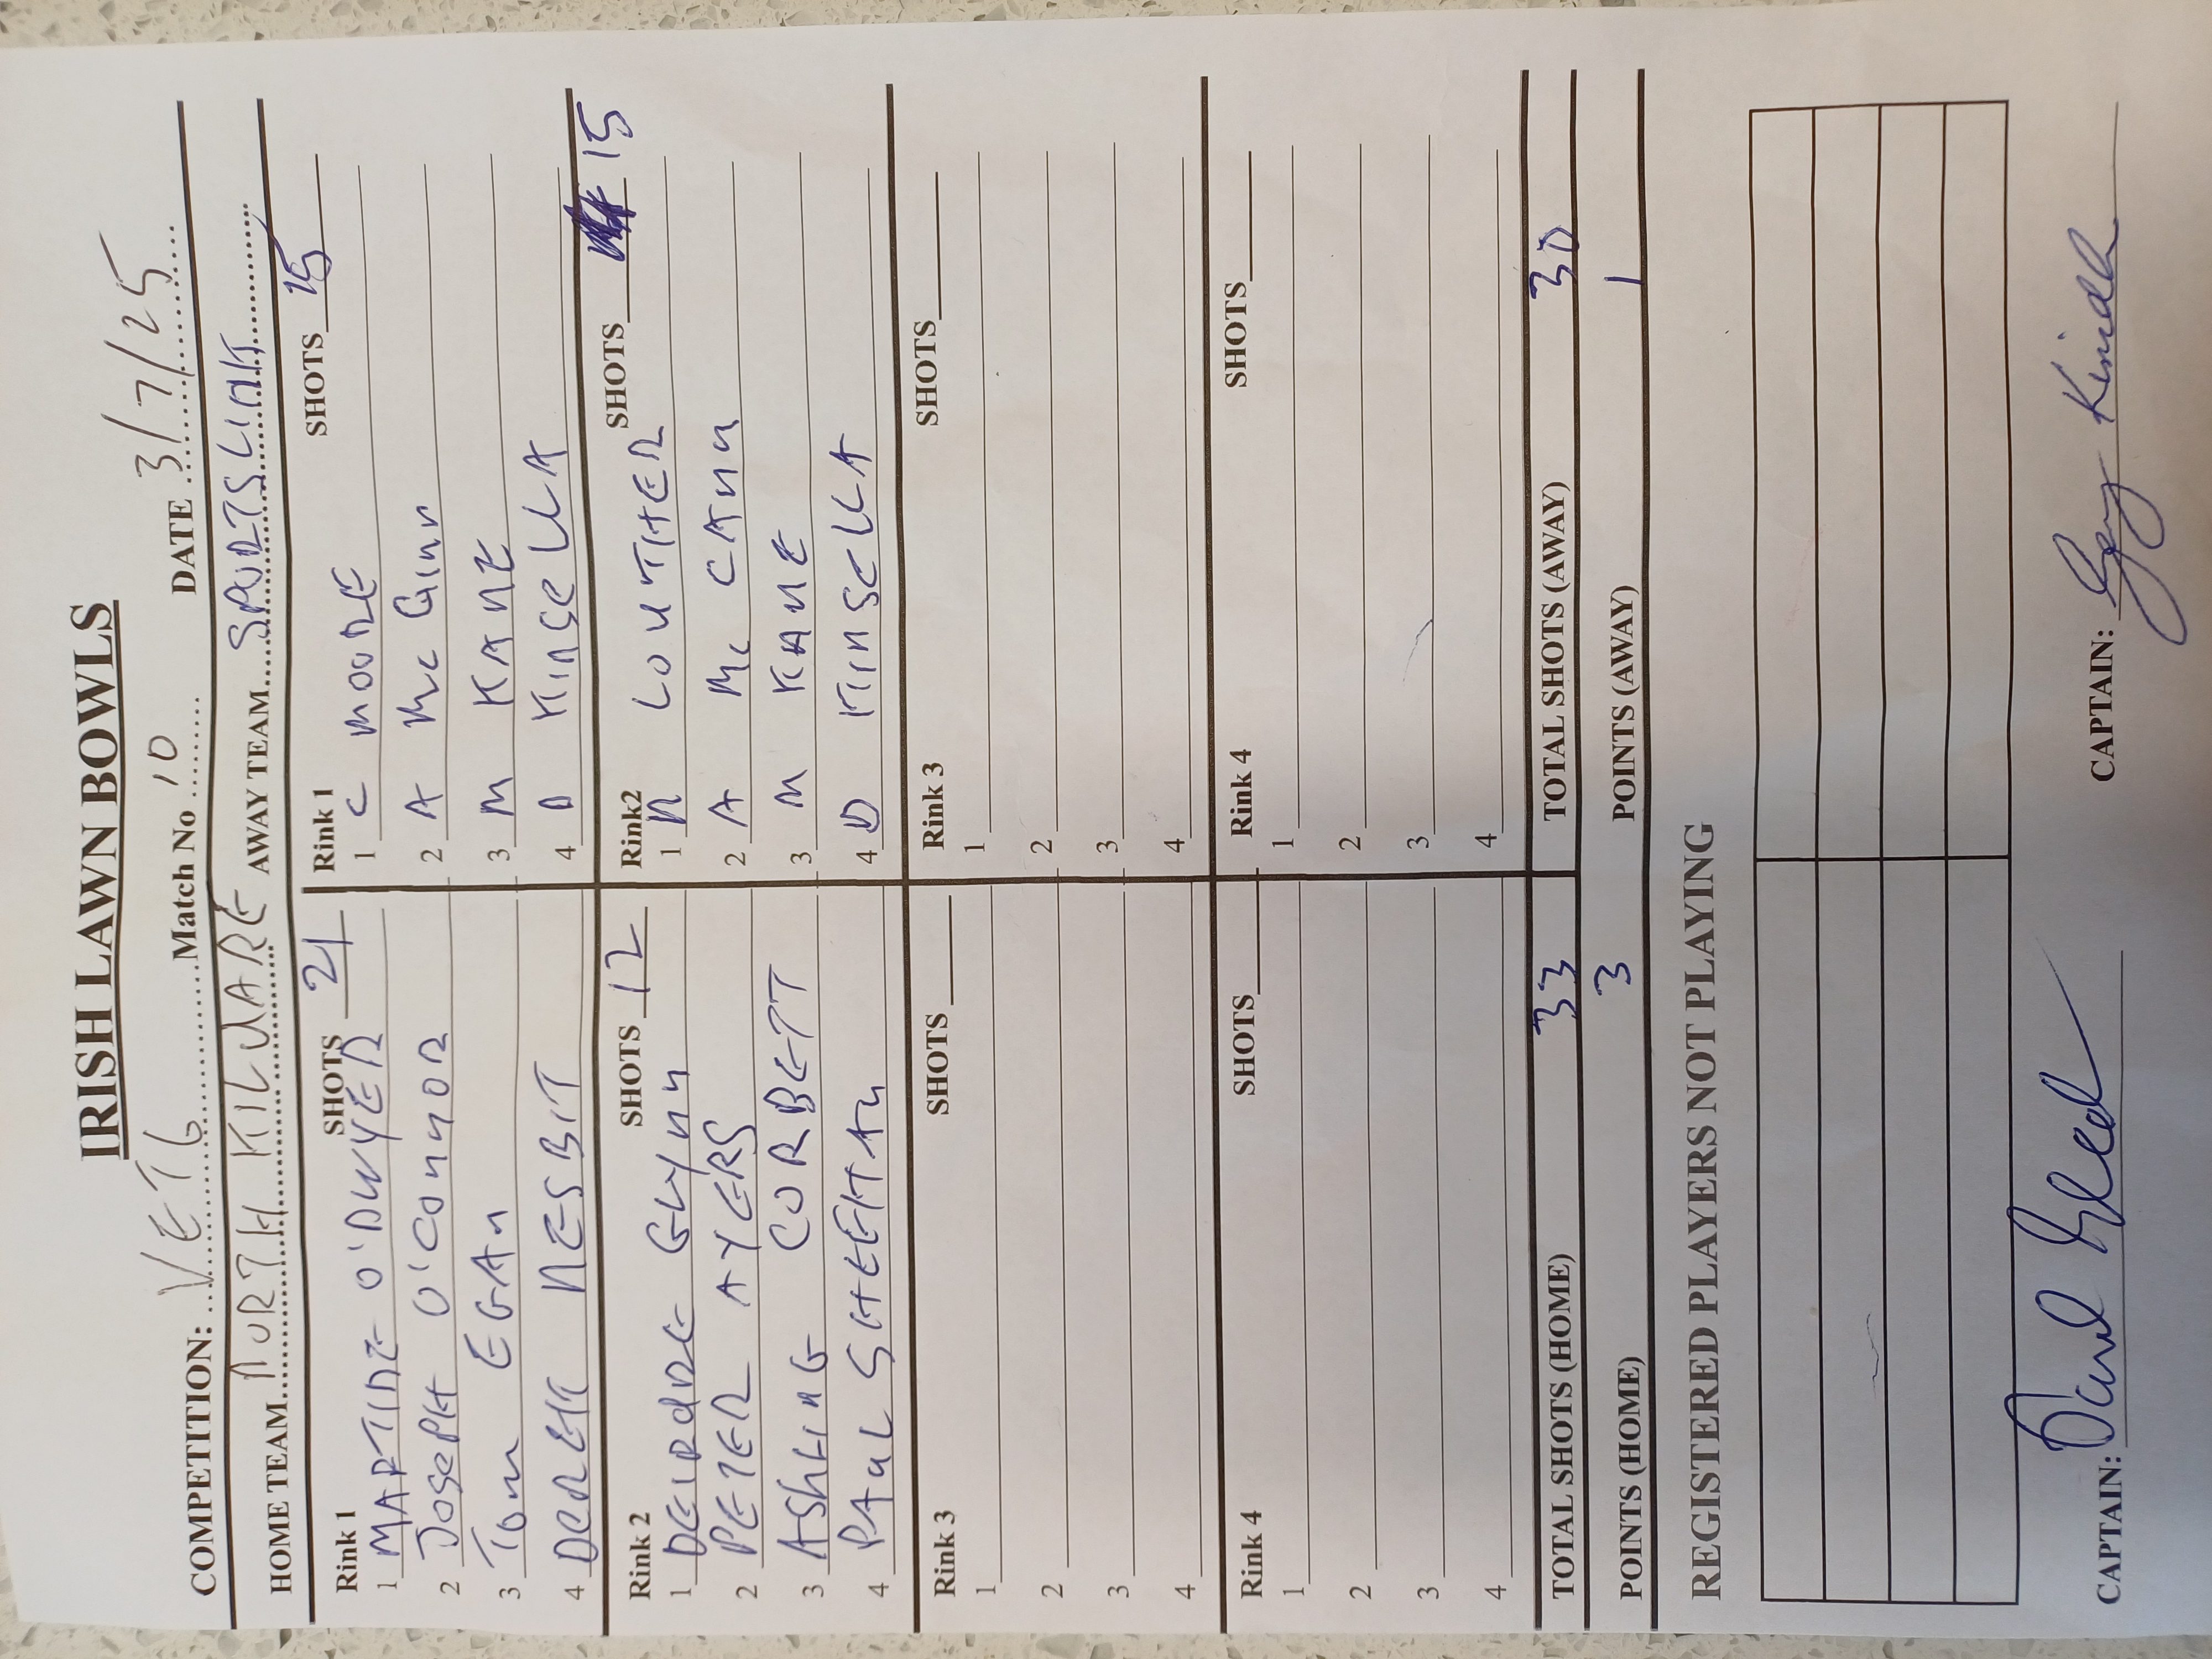 IRISH LAWN BOWLS
COMPETITION: VET 6 Match No 10 DATE 3/7/25
HOME TEAM NORTH KILDARE AWAY TEAM SPORTSLINK
Rink 1 SHOTS 21
1 MARTINE O'DWYER
2 JOSEPH O'CONNOR
3 TOM EGAN
4 DEREK NESBIT
Rink 1 SHOTS 15
1 C MOORE
2 A McGINN
3 M KANE
4 D KINSELLA
Rink 2 SHOTS 12
1 DEIRDRE GLYNN
2 PETER AYERS
3 ASHLING CORBETT
4 PAUL SHEEHAN
Rink2 SHOTS 15
1 N LOUTHER
2 A Mc CANN
3 M KANE
4 D KINSELLA
Rink 3 SHOTS
1
2
3
4
Rink 3 SHOTS
1
2
3
4
Rink 4 SHOTS
1
2
3
4
Rink 4 SHOTS
1
2
3
4
TOTAL SHOTS (HOME) 33 TOTAL SHOTS (AWAY) 30
POINTS (HOME) 3 POINTS (AWAY) 1
REGISTERED PLAYERS NOT PLAYING
CAPTAIN: David CAPTAIN: Gerry Kinsella